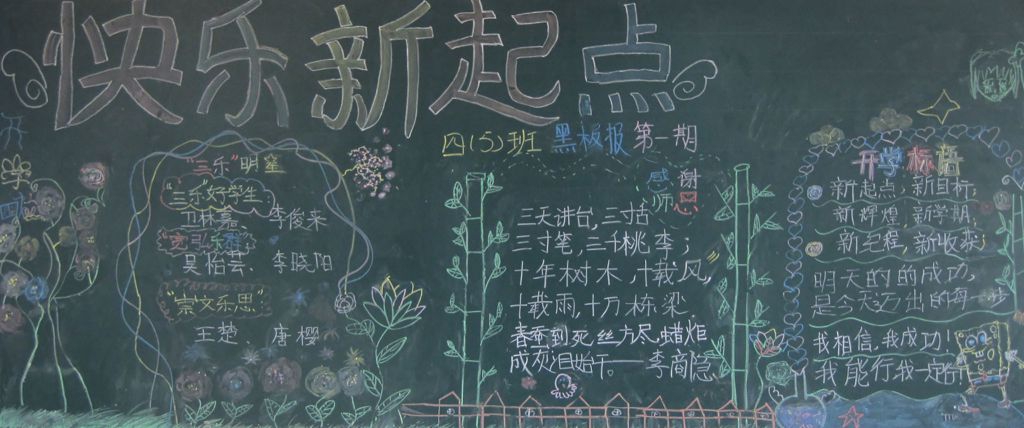 快乐新起点
四(5)班 黑板报 第一期
"三乐"明星
"三乐"好学生
卫林嘉、李俊来
吴怡芸、李晓阳
"崇文乐思"
王楚、唐樱
感谢
师恩
三天讲台,三寸舌
三寸笔,三千桃李;
十年树木,十载风,
十载雨,十万栋梁
春蚕到死丝方尽,蜡炬
成灰泪始干。——李商隐
开学标语
新起点,新目标;
新辉煌,新学期,
新主程,新收获;
明天的的成功,
是今天迈出的每一步
我相信,我成功!
我能行我一定行